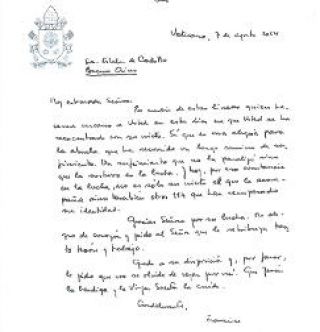 Vaticano, 7 de agosto 2014
Sra. Estela de Carlotto
Buenos Aires
Muy estimada Señora:
En medio de estas líneas quiero ha-
cerme cercano a Usted en este día en que Usted se ha
reencontrado con su nieto. Sé que es una alegría para
la abuela que ha recorrido un largo camino de su-
frimiento. Un sufrimiento que no la paralizó sino
que la sostuvo en la lucha. Y hoy, por esa constancia
en la lucha, no es solo su nieto el que la acom-
paña sino también otros 114 que han recuperado
su identidad.
Gracias Señora por su lucha. Me ale-
gro de corazón y pido al Señor que le retribuya tan-
to tesón y trabajo.
Quedo a su disposición y, por favor,
le pido que no se olvide de rezar por mí. Que Jesús
la bendiga y la Virgen Santa la cuide.
Cordialmente,
Francisco